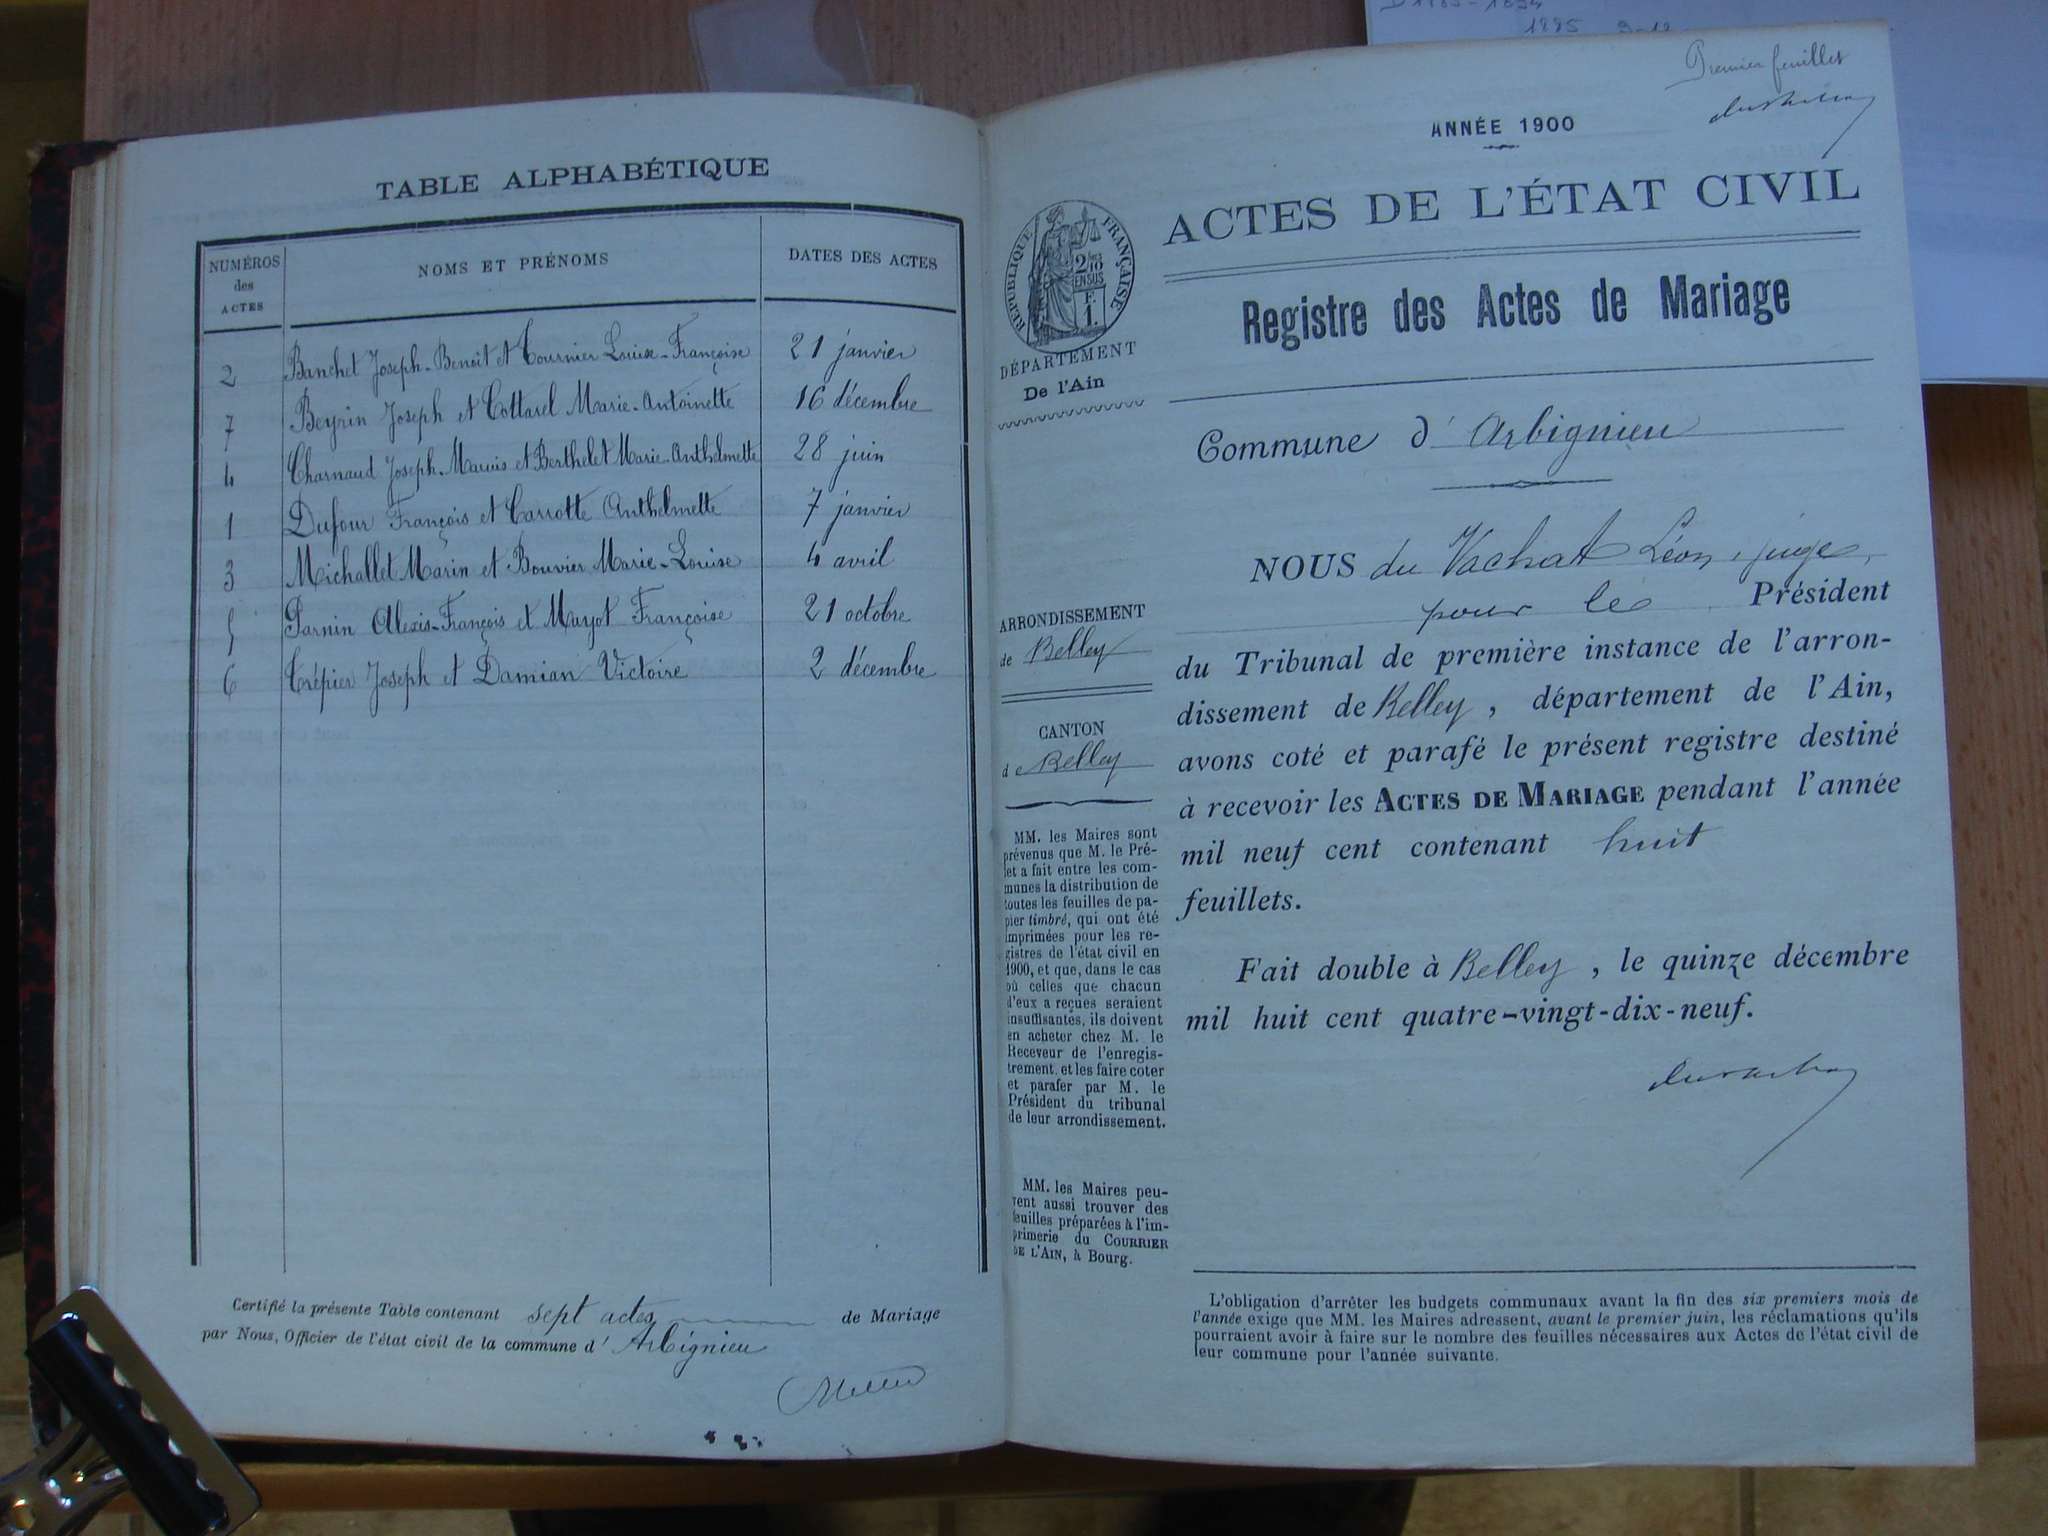 TABLE ALPHABÉTIQUE
NUMÉROS des ACTES
NOMS ET PRÉNOMS
DATES DES ACTES
2 Banchet Joseph-Benoît et Tournier Louise-Françoise 21 janvier
7 Beyrin Joseph et Cottarel Marie-Antoinette 16 décembre
4 Charnaud Joseph-Marius et Berthelet Marie-Anthelmette 28 juin
1 Dufour François et Carrotte Anthelmette 7 janvier
3 Michallet Marin et Bouvier Marie-Louise 4 avril
5 Parnin Alexis-François et Mayot Françoise 21 octobre
6 Trépier Joseph et Damian Victoire 2 décembre
Certifié la présente Table contenant sept actes de Mariage
par Nous, Officier de l'état civil de la commune d' Arbignieu
1895 9-12
Premier feuillet
ANNÉE 1900
ACTES DE L'ÉTAT CIVIL
RÉPUBLIQUE FRANÇAISE
Registre des Actes de Mariage
DÉPARTEMENT
De l'Ain
Commune d' Arbignieu
NOUS du Vachat Léon, juge,
pour le Président
du Tribunal de première instance de l'arron-
dissement de Belley, département de l'Ain,
avons coté et parafé le présent registre destiné
à recevoir les ACTES DE MARIAGE pendant l'année
mil neuf cent contenant huit
feuillets.
Fait double à Belley, le quinze décembre
mil huit cent quatre-vingt-dix-neuf.
ARRONDISSEMENT
de Belley
CANTON
de Belley
MM. les Maires sont
prévenus que M. le Pré-
fet a fait entre les com-
munes la distribution de
toutes les feuilles de pa-
pier timbré, qui ont été
imprimées pour les re-
gistres de l'état civil en
1900, et que, dans le cas
où celles que chacun
d'eux a reçues seraient
insuffisantes, ils doivent
en acheter chez M. le
Receveur de l'enregis-
trement, et les faire coter
et parafer par M. le
Président du tribunal
de leur arrondissement.
MM. les Maires peu-
vent aussi trouver des
feuilles préparées à l'im-
primerie du COURRIER
DE L'AIN, à Bourg.
L'obligation d'arrêter les budgets communaux avant la fin des six premiers mois de
l'année exige que MM. les Maires adressent, avant le premier juin, les réclamations qu'ils
pourraient avoir à faire sur le nombre des feuilles nécessaires aux Actes de l'état civil de
leur commune pour l'année suivante.